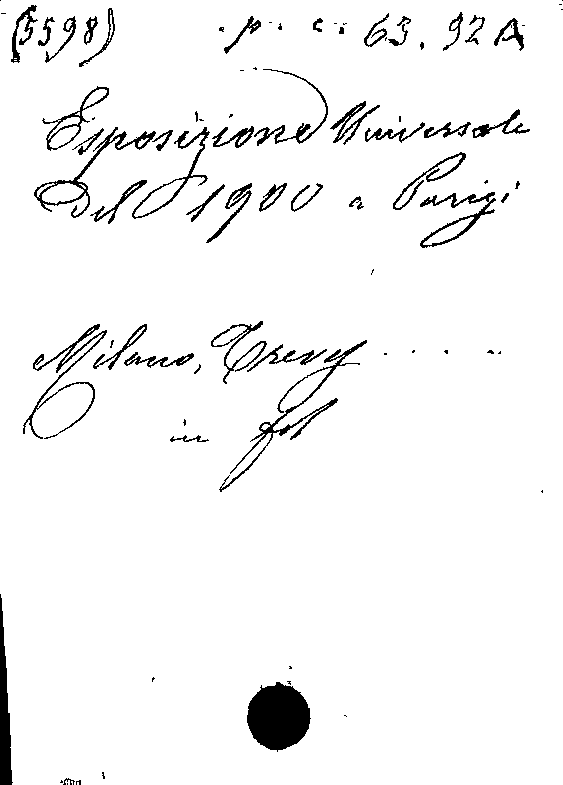 (5598) p. c. 63. 92 A
Esposizione Universale
Del 1900 a Parigi
Milano, Treves .....
in fol